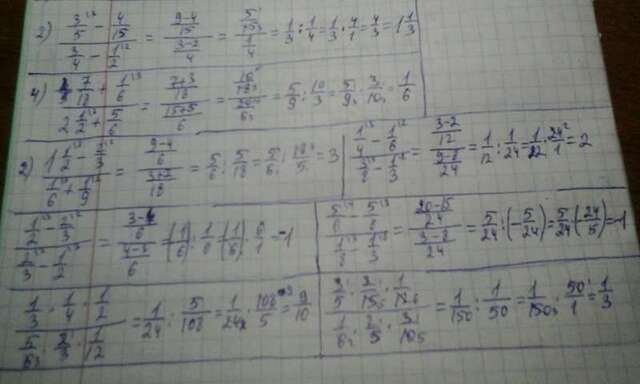 2) (3/5 - 4/15) / (3/4 - 1/2) = ((9-4)/15) / ((3-2)/4) = (5/15) / (1/4) = 1/3 : 1/4 = 1/3 · 4/1 = 4/3 = 1 1/3
4) (7/18 + 1/6) / (2 1/2 + 5/6) = ((7+3)/18) / ((15+5)/6) = (10/18) / (20/6) = 5/9 : 10/3 = 5/9 · 3/10 = 1/6
2) (1 1/2 - 2/3) / (1/6 + 1/9) = ((9-4)/6) / ((3+2)/18) = 5/6 : 5/18 = 5/6 · 18/5 = 3
(1/4 - 1/6) / (3/8 - 1/3) = ((3-2)/12) / ((9-8)/24) = 1/12 : 1/24 = 1/12 · 24/1 = 2
(1/2 - 2/3) / (2/3 - 1/2) = ((3-4)/6) / ((4-3)/6) = (-1/6) : 1/6 = (-1/6) · 6/1 = -1
(5/6 - 5/8) / (1/8 - 1/3) = ((20-15)/24) / ((3-8)/24) = 5/24 : (-5/24) = 5/24 · (-24/5) = -1
(1/3 · 1/4 · 1/2) / (5/6 · 2/3 · 1/12) = 1/24 : 5/108 = 1/24 · 108/5 = 9/10
1/150 : 1/50 = 1/150 · 50/1 = 1/3